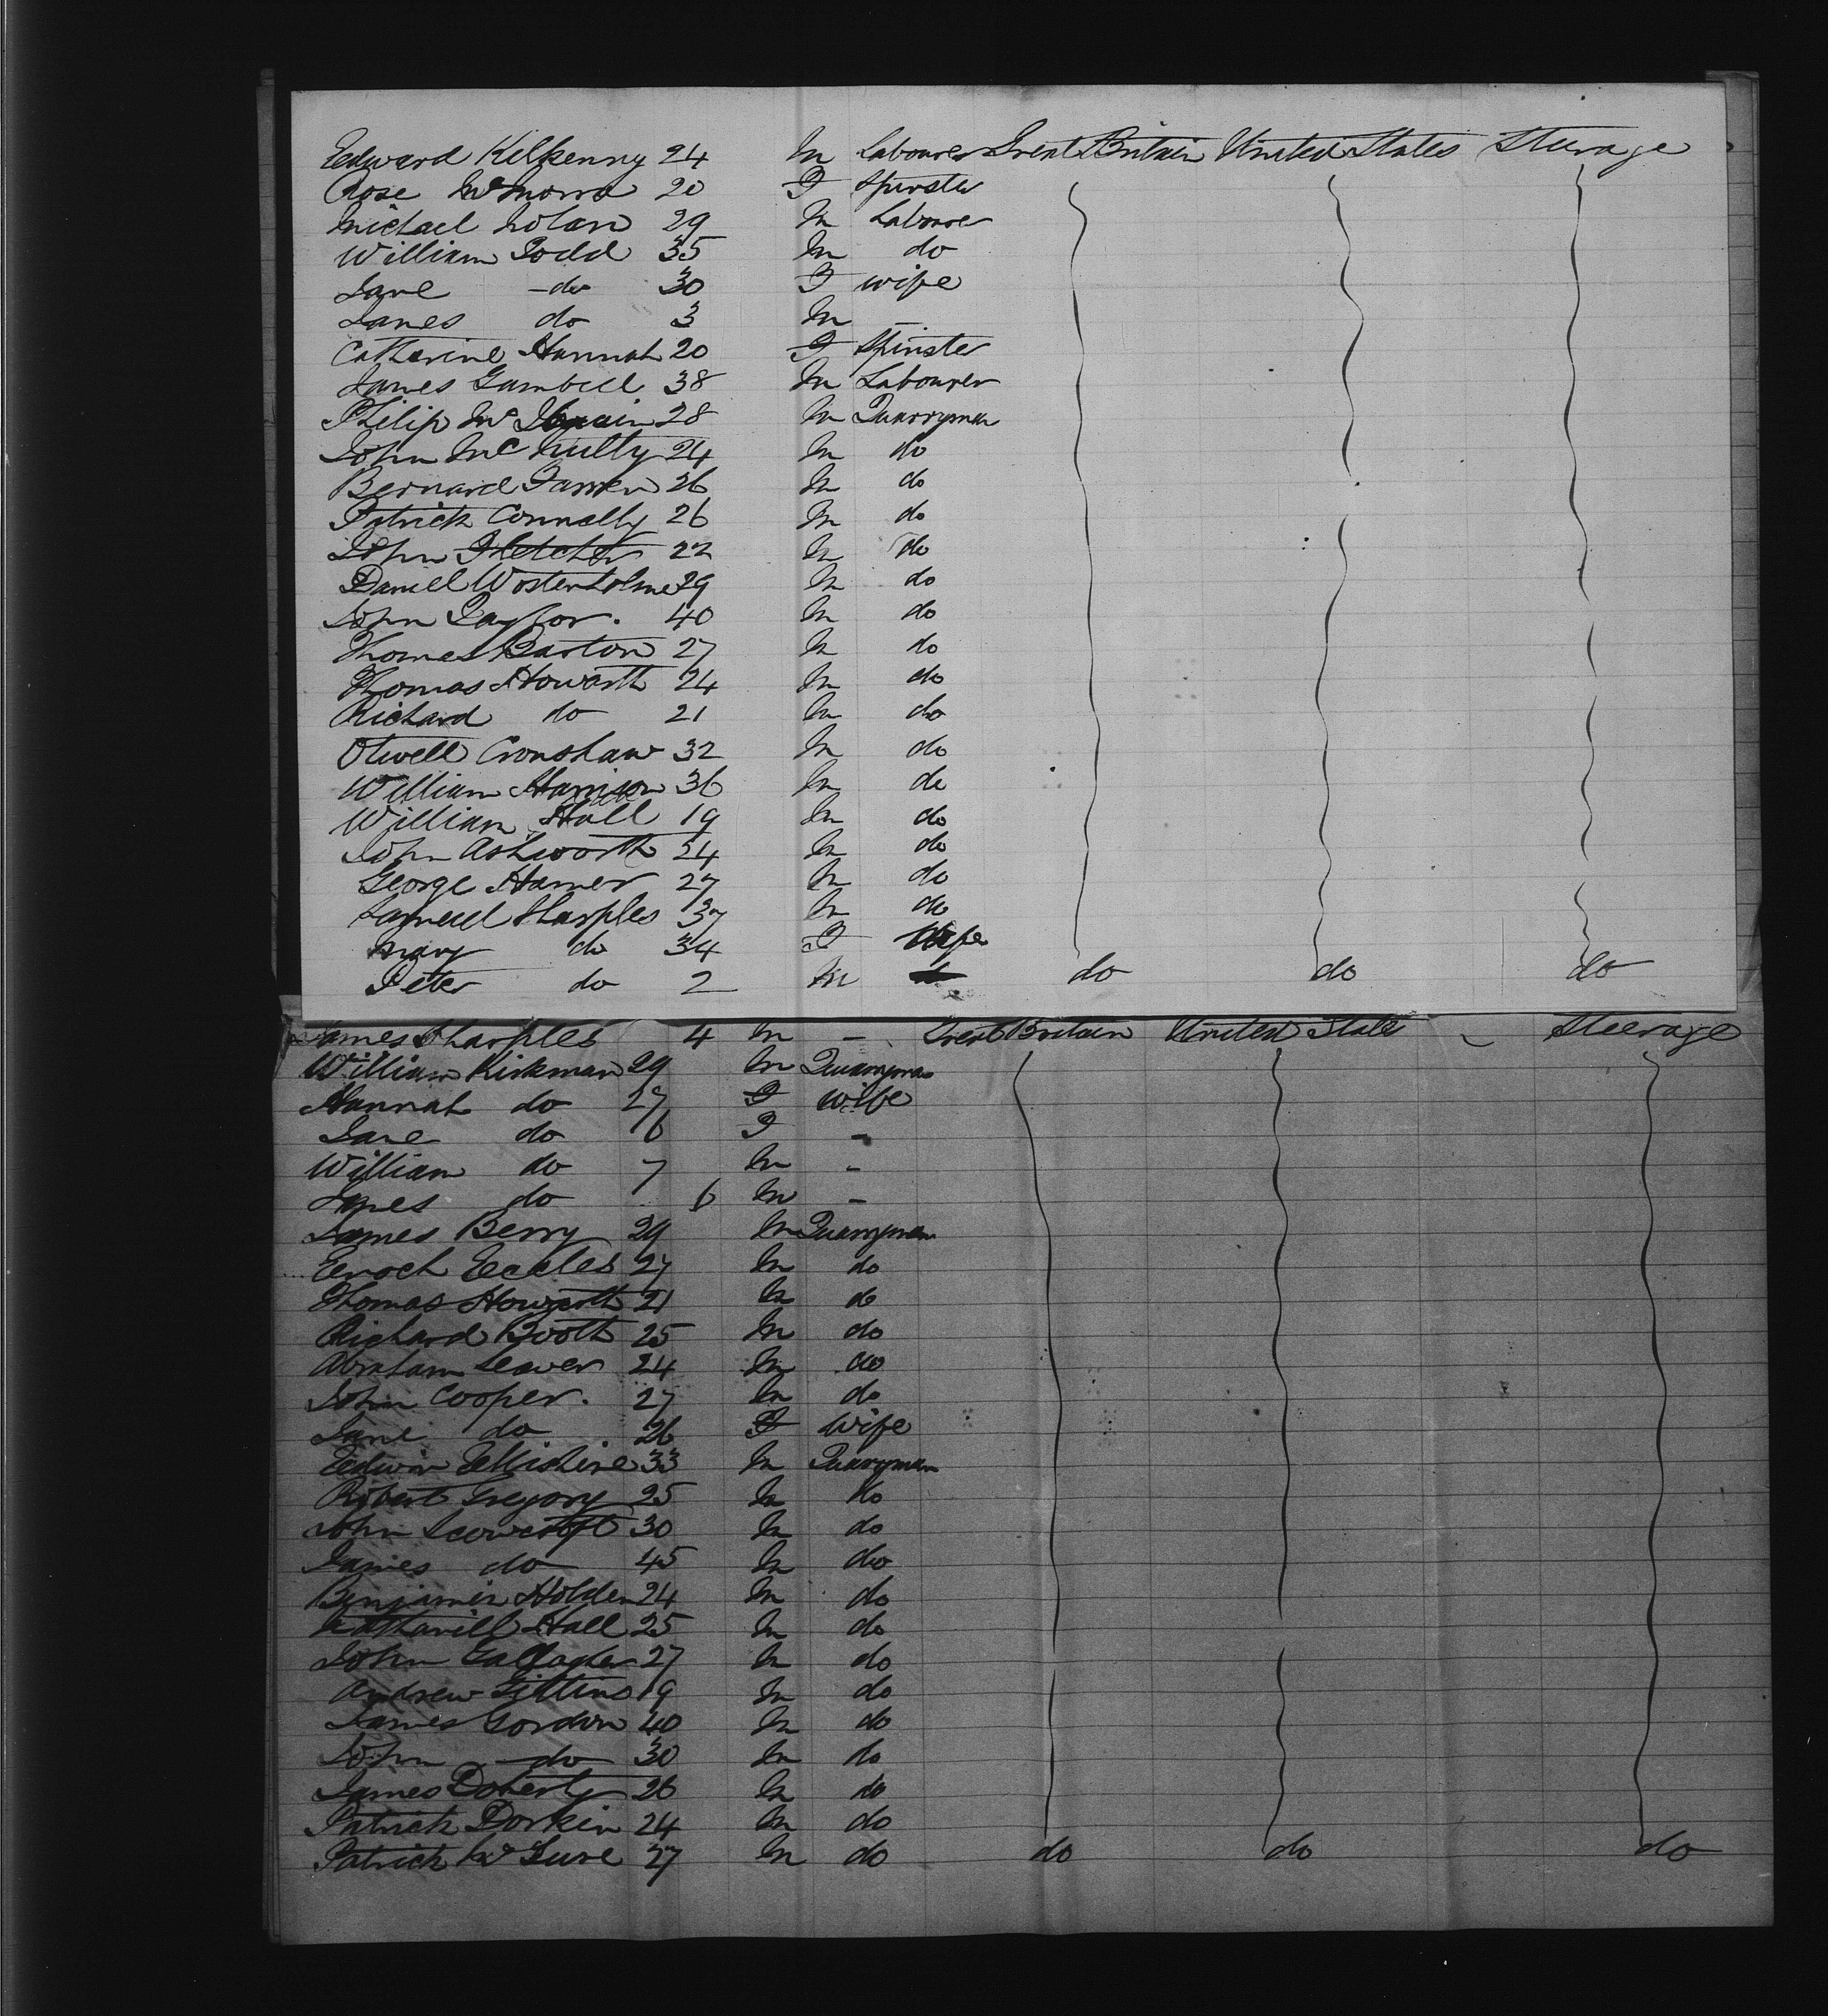 Edward Kilkenny 24 M Labourer Great Britain United States Steerage
Rose McMorra 20 F Spinster
Michael Nolan 29 M Labourer
William Todd 35 M do
Jane do 30 F wife
James do 3 M -
Catherine Hannah 20 F Spinster
James Gambell 38 M Labourer
Philip Mc 28 M Quarryman
John McNulty 24 M do
Bernard Farren 26 M do
Patrick Connolly 26 M do
John Fletcher 22 M do
Daniel Wostenholme 29 M do
John Taylor. 40 M do
Thomas Barton 27 M do
Thomas Howarth 24 M do
Richard do 21 M do
Otwell Cronshaw 32 M do
William Harrison 36 M do
William Hall 19 M do
John Ashworth 24 M do
George Hamer 27 M do
Samuel Sharples 37 M do
Mary do 34 F Wife
Peter do 2 M do do do
James Sharples 4 M - Great Britain United States Steerage
William Kirkman 29 M Quarryman
Hannah do 27 F wife
Jane do 6 F -
William do 7 M -
James do 6 M -
James Berry 29 M Quarryman
Enoch Eccles 27 M do
Thomas Howarth 21 M do
Richard Booth 25 M do
Abraham Leaver 24 M do
John Cooper. 27 M do
Jane do 26 F Wife
Edwin 33 M Quarryman
Robert Gregory 25 M do
John Scowcroft 30 M do
James do 45 M do
Benjamin Holden 24 M do
Nathanill Hall 25 M do
John Gallagher 27 M do
Andrew Gittins 19 M do
James Gordon 40 M do
John do 30 M do
James Doherty 26 M do
Patrick Dorkin 24 M do
Patrick McGure 27 M do do do do